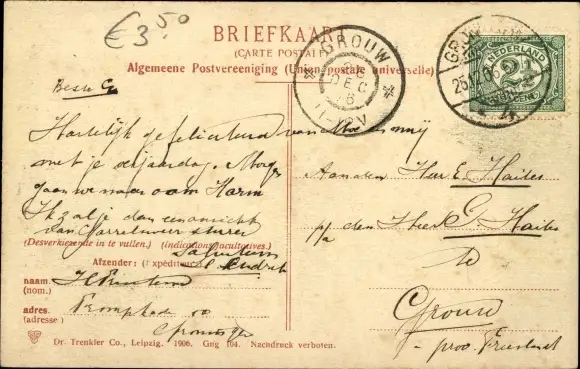 €3.50
BRIEFKAART
(CARTE POSTALE)
Algemeene Postvereeniging (Union postale universelle)
GROUW
DEC
11-12V
NEDERLAND
2½
CENT
Beste G
Hartelijk gefeliciteerd van Moe en mij
met je verjaardag. Morgen
gaan we naar oom Harm
Ik zal je dan een ansicht
van sturen
(Desverkiezende in te vullen.) (indications facultatives.)
Afzender: (expéditeur)
naam.
(nom.)
adres.
(adresse)
Aan den Heer E. Haites
p/a den Heer G. Haites
te
Grouw
- prov. Friesland
Dr. Trenkler Co., Leipzig. 1906. Gng 104. Nachdruck verboten.